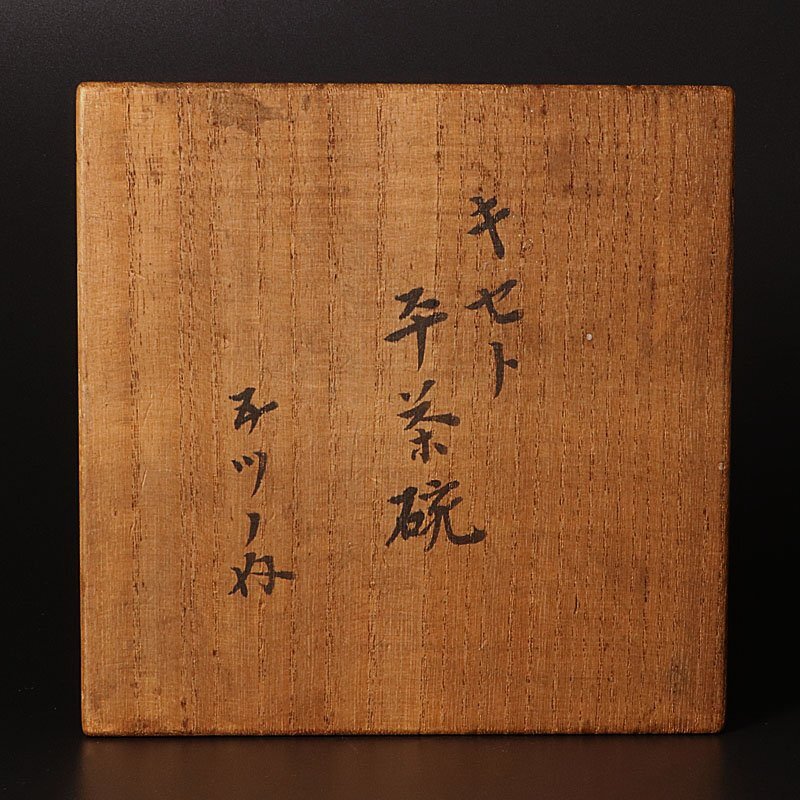 キセト
平茶碗
五ツノ